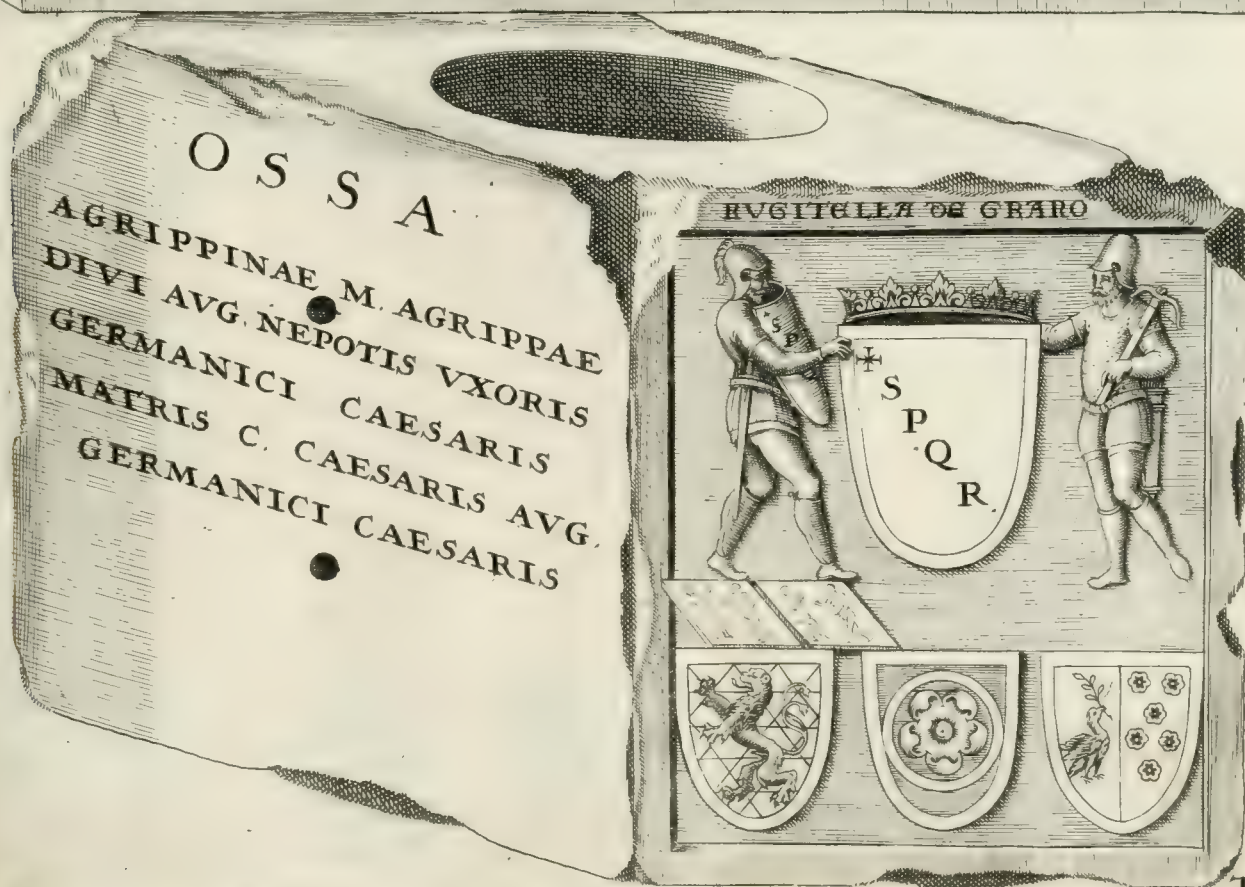 OSSA
AGRIPPINAE M. AGRIPPAE
DIVI AVG. NEPOTIS VXORIS
GERMANICI CAESARIS
MATRIS C. CAESARIS AVG.
GERMANICI CAESARIS
RVGITELLA DE GRANO
S
P
✠
S
P
Q
R.